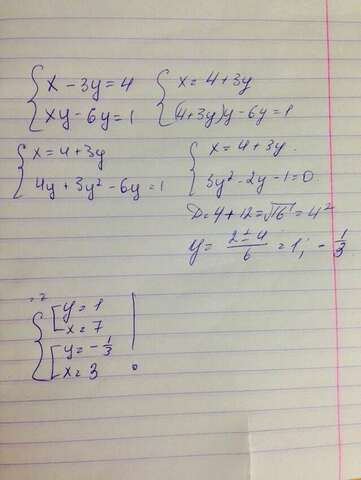 { x - 3y = 4
xy - 6y = 1
{ x = 4 + 3y
(4+3y)y - 6y = 1
{ x = 4 + 3y
4y + 3y² - 6y = 1
{ x = 4 + 3y.
3y² - 2y - 1 = 0.
D = 4 + 12 = √16 = 4²
y = (2 ± 4)/6 = 1; - 1/3
{ [ y = 1
x = 7
[ y = - 1/3
x = 3